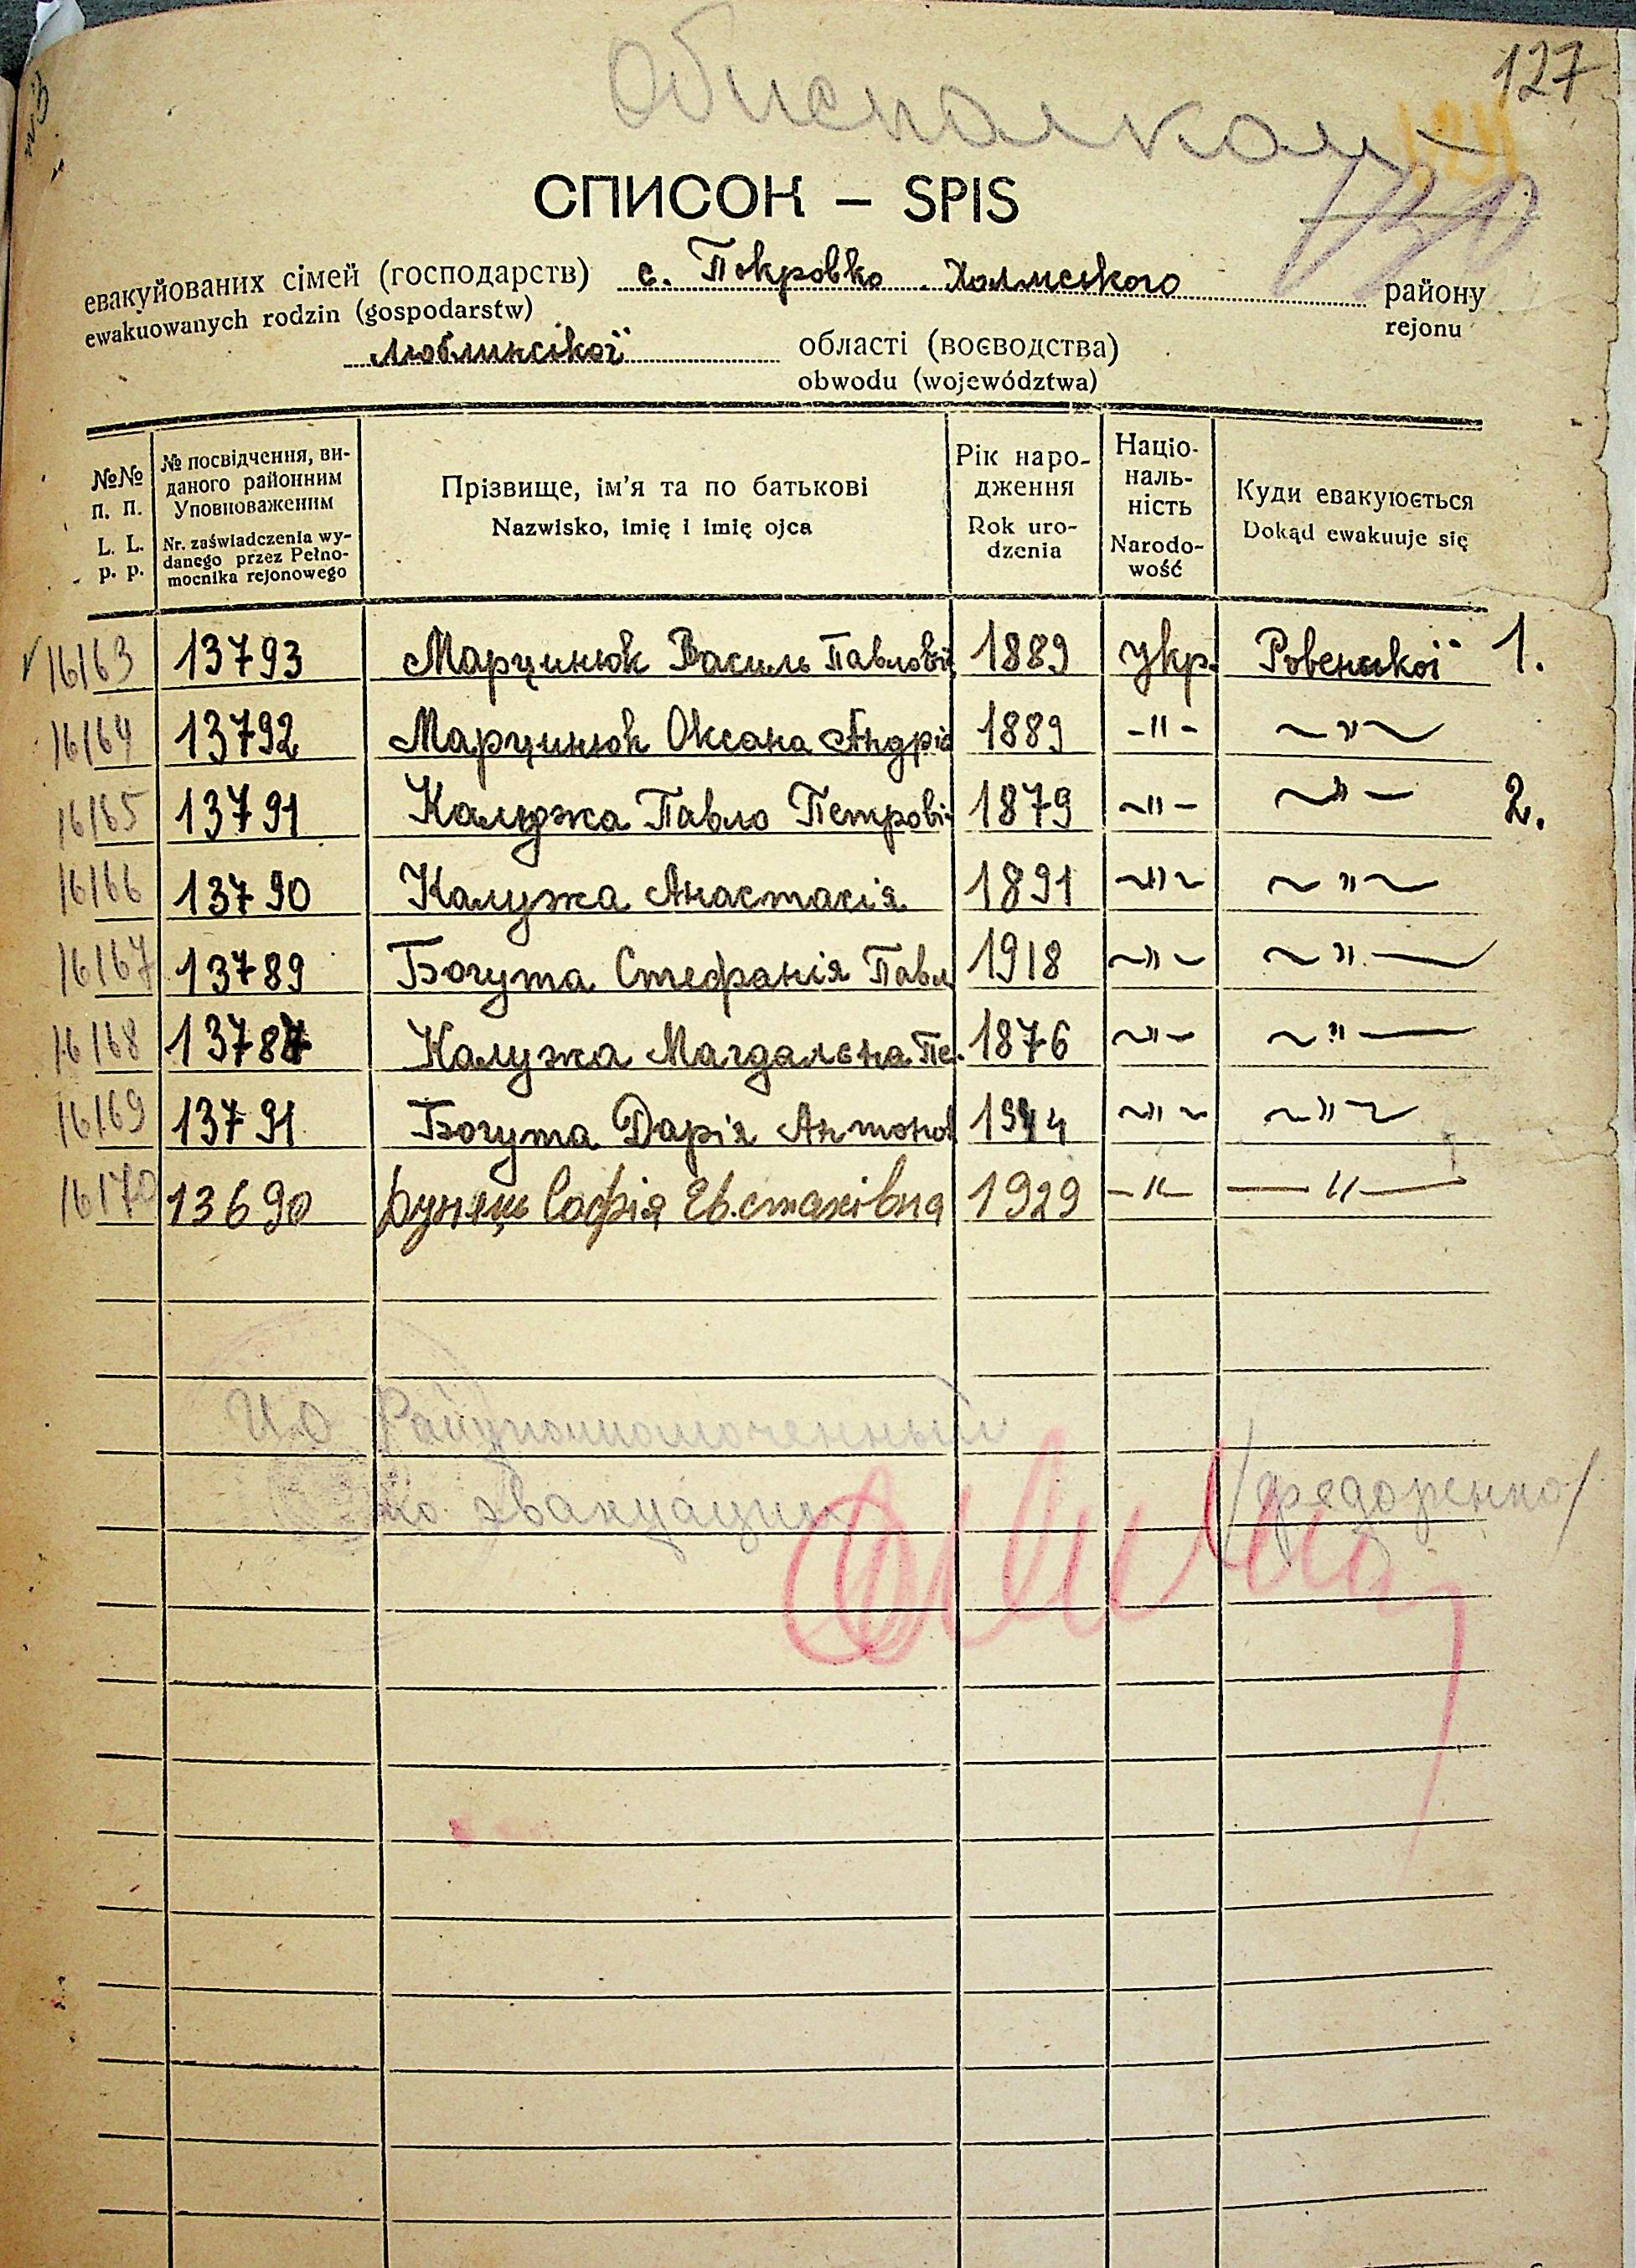 127
СПИСОК – SPIS
евакуйованих сімей (господарств) с. Покровко Холмського району
ewakuowanych rodzin (gospodarstw) rejonu
Люблинської області (воєводства)
obwodu (województwa)
№№ п. п. L. L. p. p.
№ посвідчення, виданого районним Уповноваженим Nr. zaświadczenia wydanego przez Pełnomocnika rejonowego
Прізвище, ім'я та по батькові Nazwisko, imię i imię ojca
Рік народження Rok urodzenia
Національність Narodowość
Куди евакуюється Dokąd ewakuuje się
16163 13793 Марцинюк Василь Павлові 1889 Укр. Ровенської 1.
16164 13792 Марцинюк Оксана Андрі 1889 -"- ~"~
16165 13791 Калужа Павло Петрові 1879 ~"- ~"- 2.
16166 13790 Калужа Анастасія 1891 ~"~ ~"~
16167 13789 Богута Стефанія Павл 1918 ~"~ ~"-
16168 13787 Калужа Магдалєна Пе. 1876 ~"- ~"-
16169 13791 Богута Дарія Антонов 1944 ~"~ ~"~
16170 13690 Софія Евстахівна 1929 -"- -"-
И.О Райуполномоченный
по эвакуации /Федоренко/